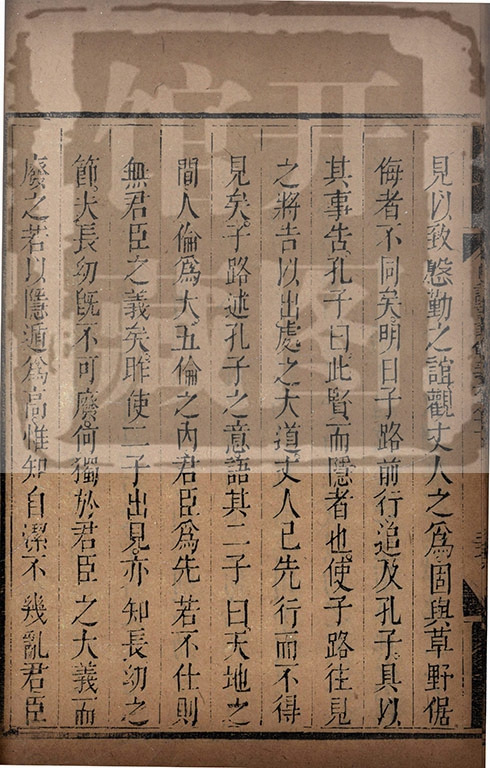 見以致慇勤之誼觀丈人之爲固與草野倨
侮者不同矣明日子路前行追及孔子具以
其事告孔子曰此賢而隱者也使子路往見
之將告以出處之大道丈人已先行而不得
見矣子路述孔子之意語其二子曰天地之
間人倫爲大五倫之內君臣爲先若不仕則
無君臣之義矣昨使二子出見亦知長幼之
節夫長幼旣不可廢何獨於君臣之大義而
廢之若以隱遁爲高惟知自潔不幾亂君臣